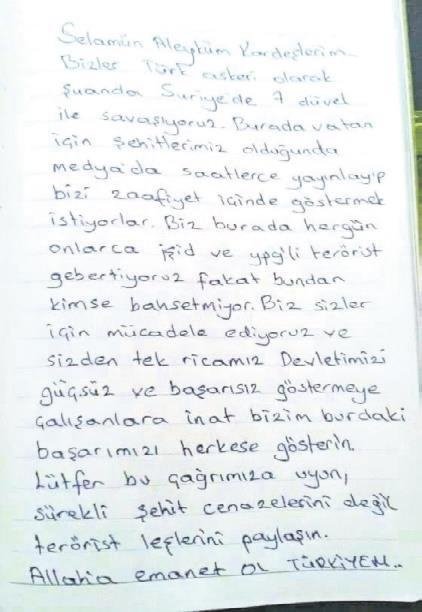 Selamün Aleyküm Kardeşlerim..
Bizler Türk askeri olarak
Şuanda Suriye'de 7 düvel
ile savaşıyoruz. Burada vatan
için şehitlerimiz olduğunda
medya'da saatlerce yayınlayıp
bizi zaafiyet içinde göstermek
istiyorlar. Biz burada hergün
onlarca işid ve ypg'li terörist
gebertiyoruz fakat bundan
kimse bahsetmiyor. Biz sizler
için mücadele ediyoruz ve
sizden tek ricamız Devletimizi
güçsüz ve başarısız göstermeye
çalışanlara inat bizim burdaki
başarımızı herkese gösterin.
Lütfen bu çağrımıza uyun,
sürekli şehit cenazelerini değil
terörist leşlerini paylaşın.
Allah'a emanet ol TÜRKİYEM..